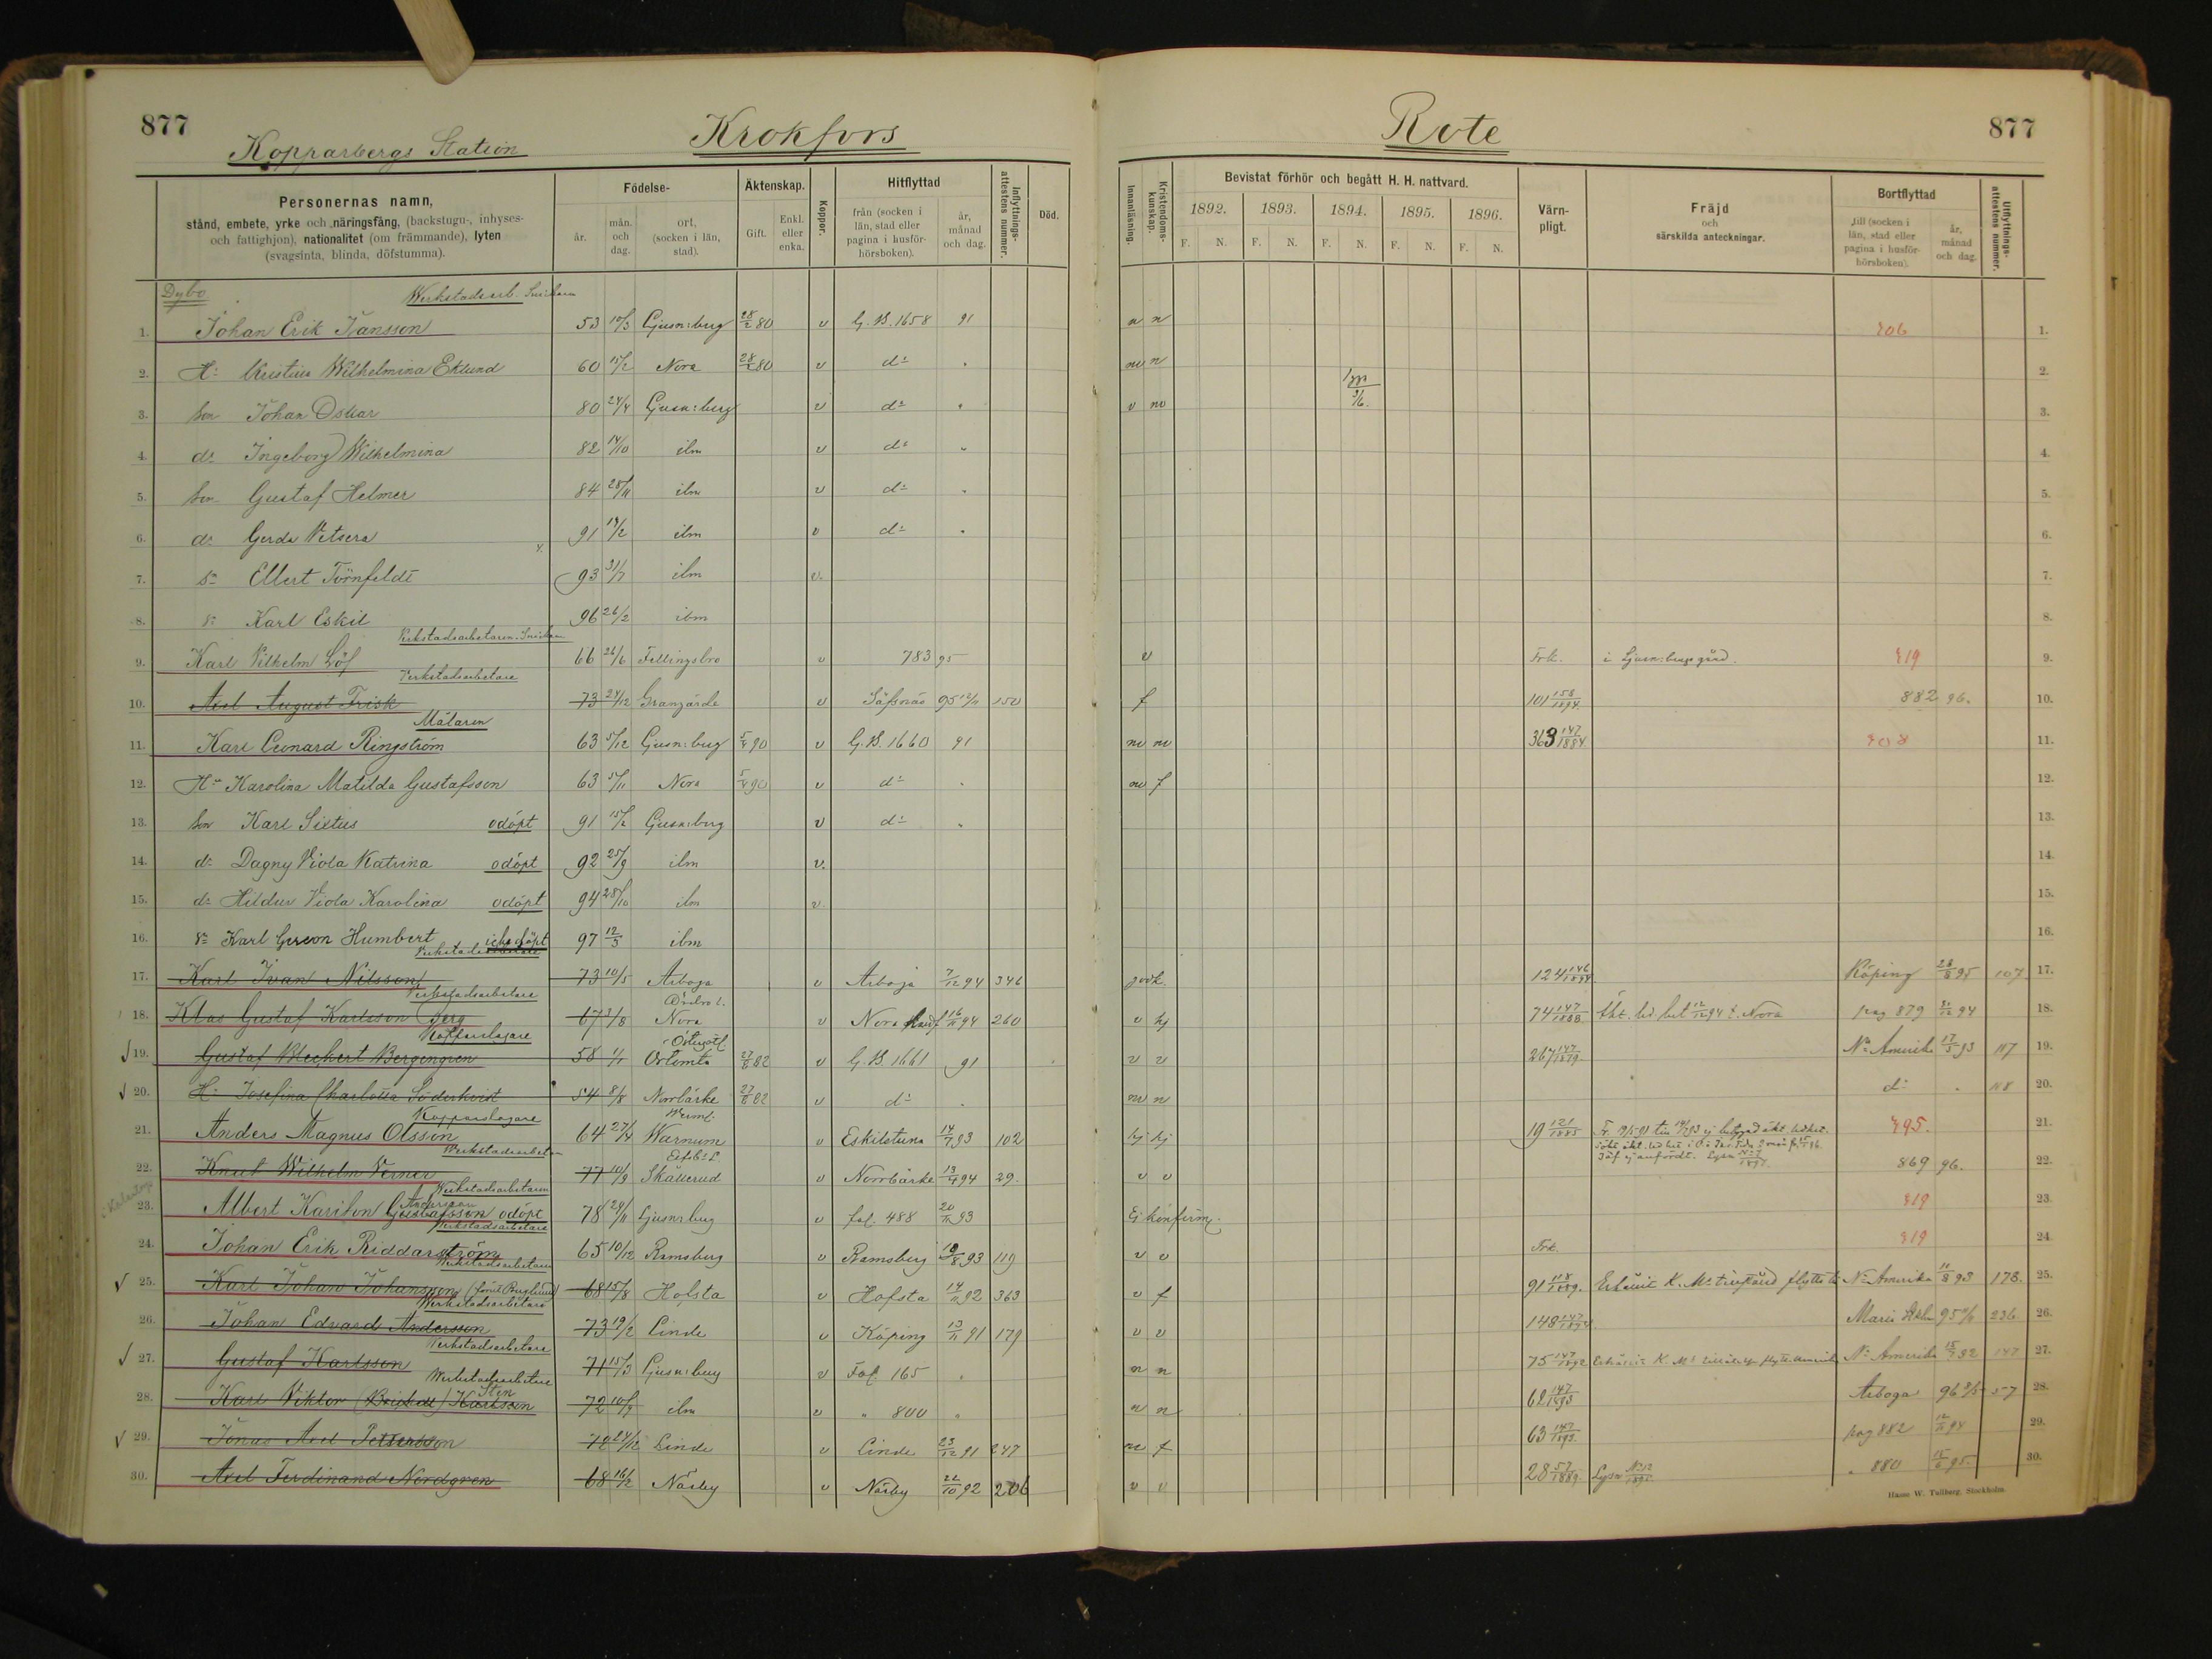 877
Kopparbergs Station
Krokfors
Rote
877
Personernas namn,
stånd, embete, yrke och näringsfång, (backstugu-, inhyses-
och fattighjon), nationalitet (om främmande), lyten
(svagsinta, blinda, döfstumma).
Födelse-
år.
mån. och dag.
ort, (socken i län, stad).
Äktenskap.
Gift.
Enkl. eller enka.
Koppor.
Hitflyttad
från (socken i län, stad eller pagina i husförhörsboken).
år, månad och dag.
Inflyttnings-attestens nummer.
Död.
Innanläsning.
Kristendoms-kunskap.
Bevistat förhör och begått H. H. nattvard.
1892. 1893. 1894. 1895. 1896.
F. N. F. N. F. N. F. N. F. N.
Värn-pligt.
Fräjd
och
särskilda anteckningar.
Bortflyttad
till (socken i län, stad eller pagina i husförhörsboken).
år, månad och dag.
Utflyttnings-attestens nummer.
Dybo
Werkstadsarb. Snickare
1. Johan Erik Jansson 53 10/3 Ljusn:berg 28/2 80 v G.B. 1658 91 n n 1.
2. H:u Kristina Wilhelmina Eklund 60 15/2 Nora 28/2 80 v d:o nv n 2.
3. Son Johan Oskar 80 24/4 Ljusn:berg v d:o v nv 3/6. 3.
4. d:r Ingeborg Wilhelmina 82 14/10 ibm v d:o 4.
5. Son Gustaf Helmer 84 28/11 ibm v d:o 5.
6. d:r Gerda Vetsera 91 19/2 ibm v d:o 6.
7. Sn Ellert Törnfeldt 93 31/7 ibm v. 7.
8. Sn Karl Eskil 96 26/2 ibm 8.
Verkstadsarbetaren Snickare
9. Karl Vilhelm Löf 66 26/6 Fellingsbro v 783 95 v Frk. i Ljusn:bergs gård. 819 9.
Verkstadsarbetare
10. Axel August Frisk 73 24/12 Grangärde v Säfsnäs 95 12/11 150 f 101 158/1894 882 96. 10.
Målaren
11. Karl Leonard Ringström 63 5/12 Ljusn:berg 5/4 90 v G.B. 1660 91 nv nv 363 147/1884 808 11.
12. H:u Karolina Matilda Gustafsson 63 5/11 Nora 5/4 90 v d:o nv f 12.
13. Son Karl Sixtus odöpt 91 15/2 Ljusn:berg v d:o 13.
14. d:r Dagny Viola Katrina odöpt 92 25/9 ibm v. 14.
15. d:r Hildur Viola Karolina odöpt 94 28/10 ibm v. 15.
16. Sn Karl Gerson Humbert icke döpt 97 12/3 ibm 16.
Verkstadsarbetare
17. Karl Ivan Nilsson 73 10/5 Arboga v Arboga 7/12 94 346 godk. 124 146/1894 Köping 28/8 95 107 17.
Verkstadsarbetare
18. Klas Gustaf Karlsson Berg 67 3/8 Nora Örebro l. v Nora 16/11 94 260 v hj 74 147/1888 Äkt. led bet 12/12 94 t. Nora pag 879 94 18.
Kopparslagare
19. Gustaf Bleckert Bergengren 58 1/1 Östergötl. 27/8 82 v G.B. 1661 91 v v 267 147/1879 N. Amerika 17/3 93 117 19.
20. H:u Josefina Charlotta Söderkvist 54 8/8 Norrbärke 27/8 82 v d:o nv n d:o 118 20.
Kopparslagare
21. Anders Magnus Olsson 64 27/4 Warnum Werml. v Eskilstuna 14/7 93 102 hj hj 19 121/1885 895. 21.
Jäf ej anfördt. Lysn
Werkstadsarbetare
22. Knut Wilhelm Verner 77 10/9 Skållerud Elfsb: L. v Norrbärke 13/4 94 29. v v 869 96. 22.
Werkstadsarbetaren
23. Albert Karifon Gustafsson Andersson odöpt 78 24/11 Ljusn:berg v fol. 488 20/11 93 Ej konfirm. 819 23.
Verkstadsarbetare
24. Johan Erik Riddarström 65 10/12 Ramsberg v Ramsberg 18/8 93 119 v v Frk. 819 24.
Werkstadsarbetare
25. Karl Johan Johansson 68 15/8 Hofsta v Hofsta 14/11 92 363 v f 91 118/1889. Erhållit K. M:s tillstånd flytta till N. Amerika 11/8 93 173. 25.
Werkstadsarbetare
26. Johan Edvard Andersson 73 19/2 Linde v Köping 13/11 91 179 v v 148 147/1894 236 26.
Werkstadsarbetare
27. Gustaf Karlsson 71 15/3 Ljusn:berg v Fol. 165 n n 75 147/1892 N. Amerika 15/7 92 147 27.
Werkstadsarbetare
28. Karl Viktor Sten Karlsson 72 10/9 ibm v " 800 " n n 62 147/1893 Arboga 96 57 28.
29. Jonas Axel Pettersson 72 24/12 Linde v Linde 23/12 91 247 nv f 63 147/1893 pag 882 12/11 94 29.
30. Axel Ferdinand Nordgren 68 16/2 Näsby v Näsby 22/10 92 206 v v 28 57/1889 Lysn N:o 12/1895 " 880 15/6 95. 30.
Hasse W. Tullberg, Stockholm.